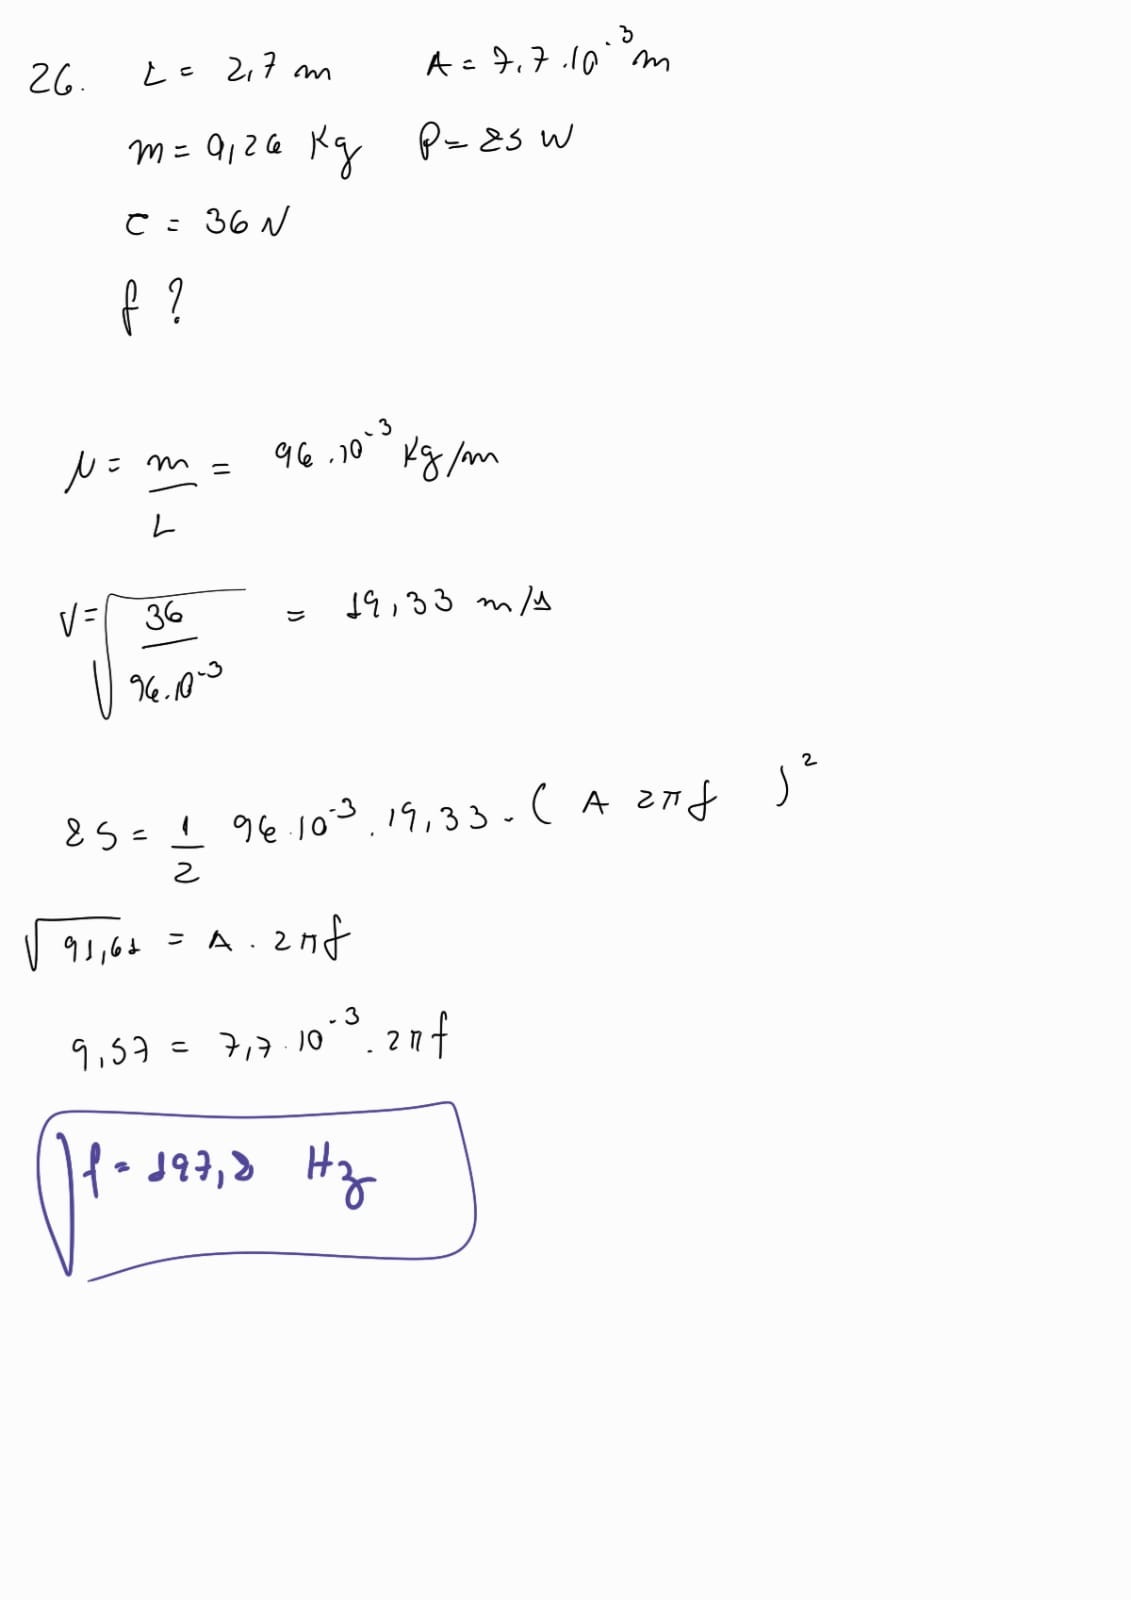 26. L = 2,7 m A = 7,7 . 10⁻³ m
m = 0,26 Kg P = 85 W
τ = 36 N
f ?
μ = m/L = 96 . 10⁻³ Kg/m
V = √(36/96.10⁻³) = 19,33 m/s
85 = 1/2 96.10⁻³ . 19,33 . ( A 2πf )²
√91,61 = A . 2πf
9,57 = 7,7 . 10⁻³ . 2πf
f = 197,8 Hz